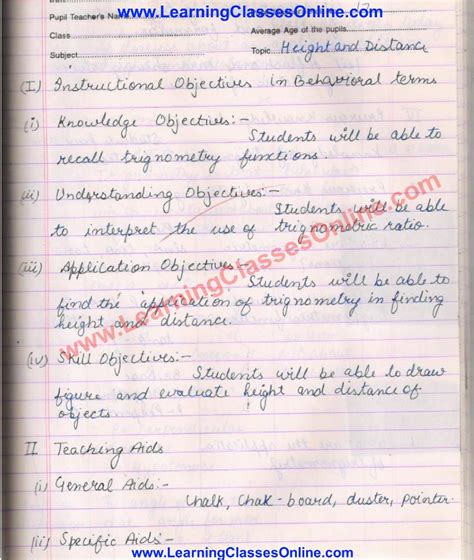 www.LearningClassesOnline.com
Pupil Teacher's Name
Class Average Age of the pupils
Subject Topic Height and Distance
(I) Instructional Objectives in Behavioral terms
(i) Knowledge Objectives:-
Students will be able to
recall trignometry functions.
(ii) Understanding Objectives:-
Students will be able
to interpret the use of trignometric ratio.
(iii) Application Objectives:-
Students will be able to
find the application of trignometry in finding
height and distance.
www.LearningClassesOnline.com
(iv) Skill Objectives:-
Students will be able to draw
figure and evaluate height and distance of
objects
II Teaching Aids
(i) General Aids:-
Chalk, Chak-board, duster, pointer.
(ii) Specific Aids:-
www.LearningClassesOnline.com